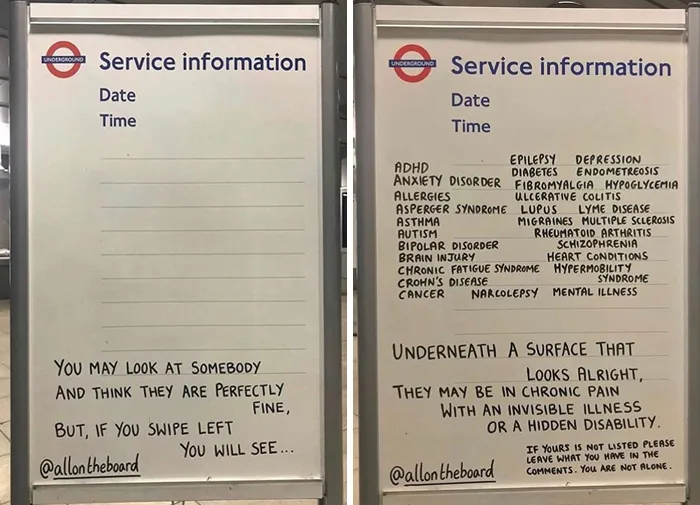 UNDERGROUND
Service information
Date
Time
YOU MAY LOOK AT SOMEBODY
AND THINK THEY ARE PERFECTLY
FINE,
BUT, IF YOU SWIPE LEFT
YOU WILL SEE...
@allontheboard
UNDERGROUND
Service information
Date
Time
EPILEPSY DEPRESSION
ADHD DIABETES ENDOMETREOSIS
ANXIETY DISORDER FIBROMYALGIA HYPOGLYCEMIA
ALLERGIES ULCERATIVE COLITIS
ASPERGER SYNDROME LUPUS LYME DISEASE
ASTHMA MIGRAINES MULTIPLE SCLEROSIS
AUTISM RHEUMATOID ARTHRITIS
BIPOLAR DISORDER SCHIZOPHRENIA
BRAIN INJURY HEART CONDITIONS
CHRONIC FATIGUE SYNDROME HYPERMOBILITY
CROHN'S DISEASE SYNDROME
CANCER NARCOLEPSY MENTAL ILLNESS
UNDERNEATH A SURFACE THAT
LOOKS ALRIGHT,
THEY MAY BE IN CHRONIC PAIN
WITH AN INVISIBLE ILLNESS
OR A HIDDEN DISABILITY.
IF YOURS IS NOT LISTED PLEASE
LEAVE WHAT YOU HAVE IN THE
COMMENTS. YOU ARE NOT ALONE.
@allontheboard